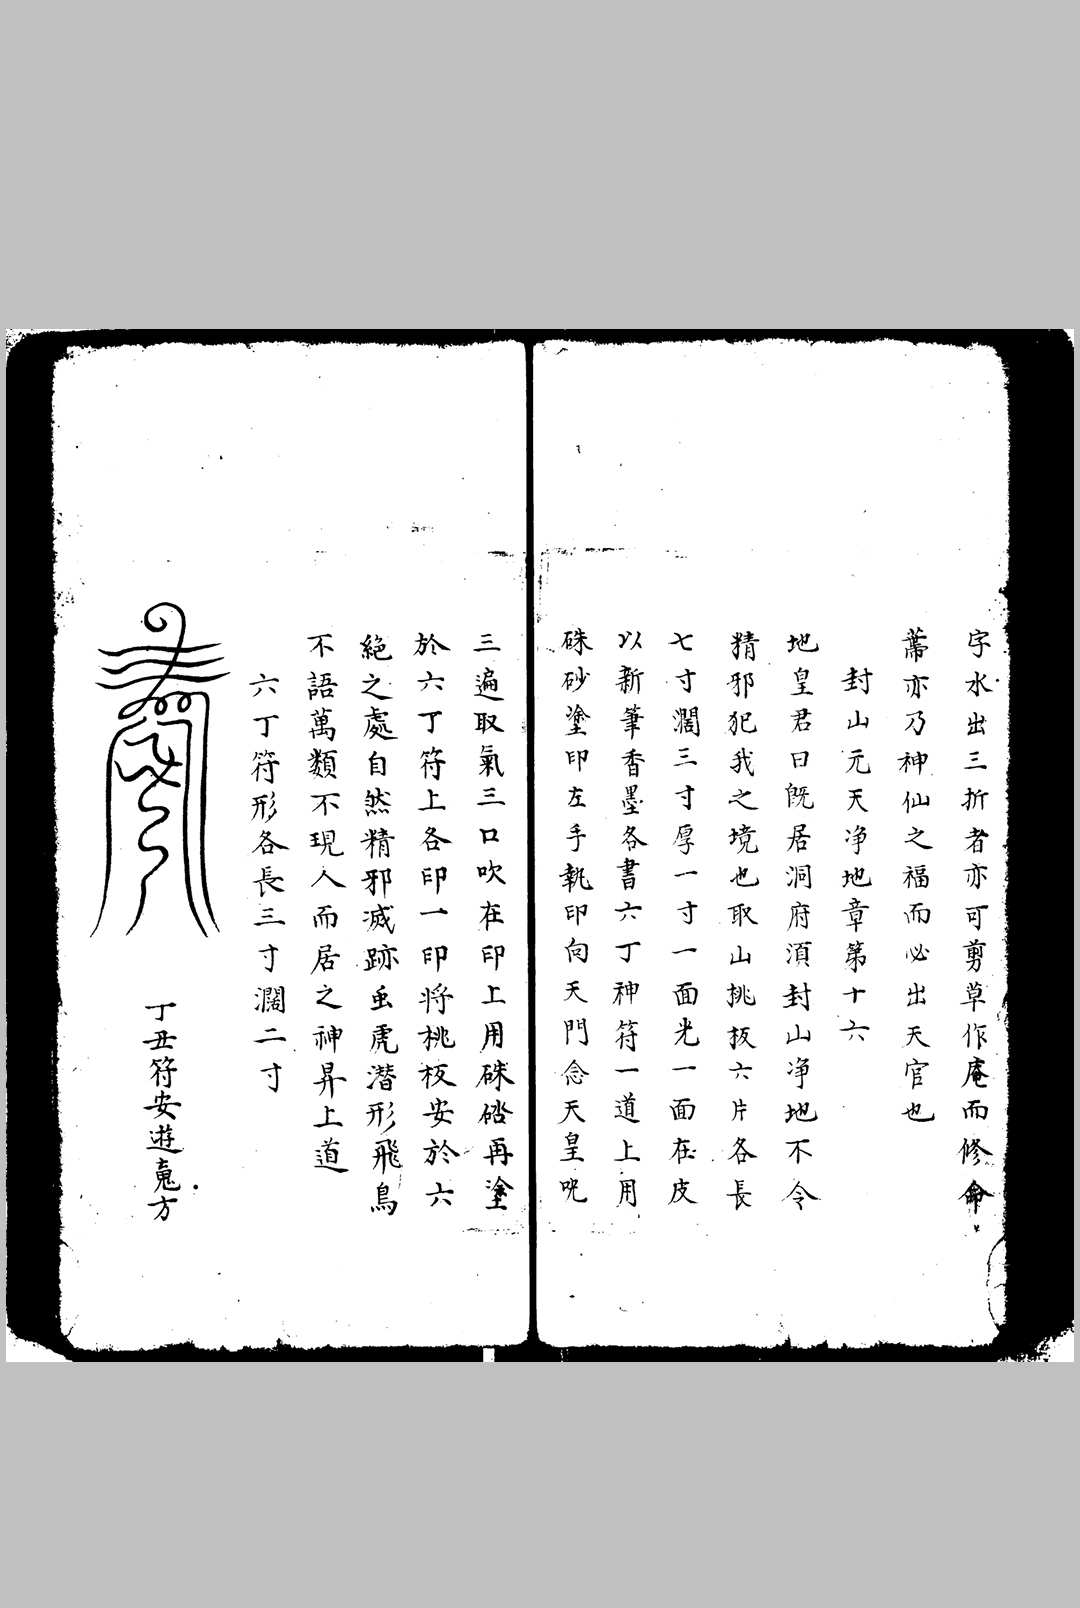 字水出三折者亦可剪草作庵而修命
蓆亦乃神仙之福而必出天官也
封山元天净地章第十六
地皇君曰旣居洞府湏封山净地不令
精邪犯我之境也取山桃板六片各長
七寸濶三寸厚一寸一面光一面在皮
以新筆香墨各書六丁神符一道上用
硃砂塗印左手執印向天門念天皇呪
三遍取氣三口吹在印上用硃硓再塗
於六丁符上各印一印将桃板安於六
絶之處自然精邪滅跡虫虎潜形飛鳥
不語萬類不現人而居之神昇上道
六丁符形各長三寸濶二寸
丁丑符安遊魂方